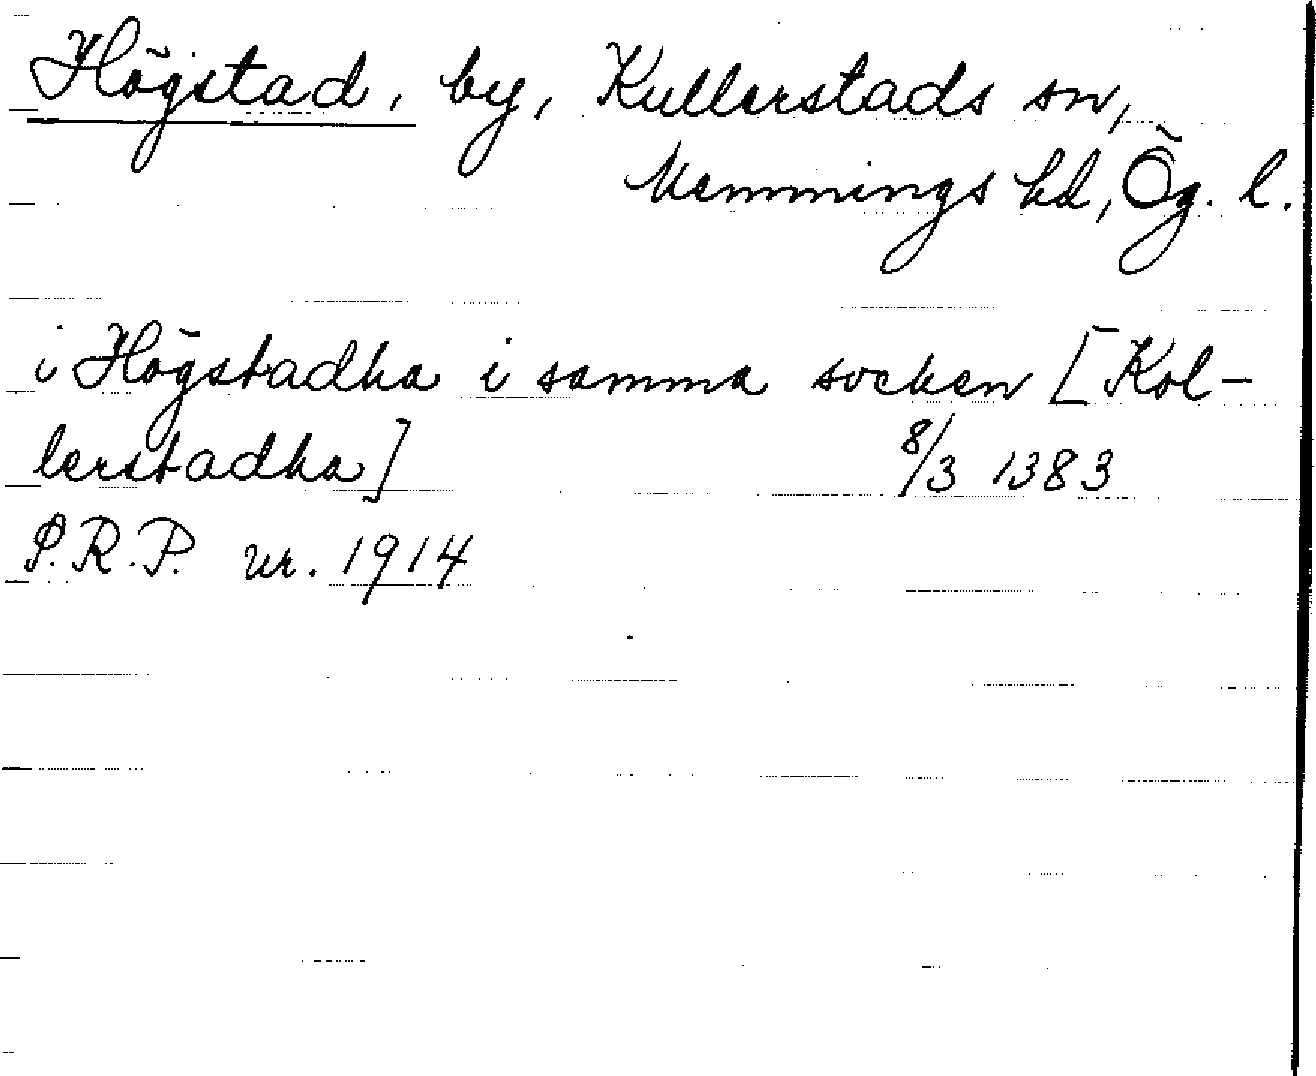 Högstad, by, Kullerstads sn,
Memmings hd, Ög. l.
i Högstadha i samma socken [Kol-
lerstadha] 8/3 1383
P.R.P. nr. 1914